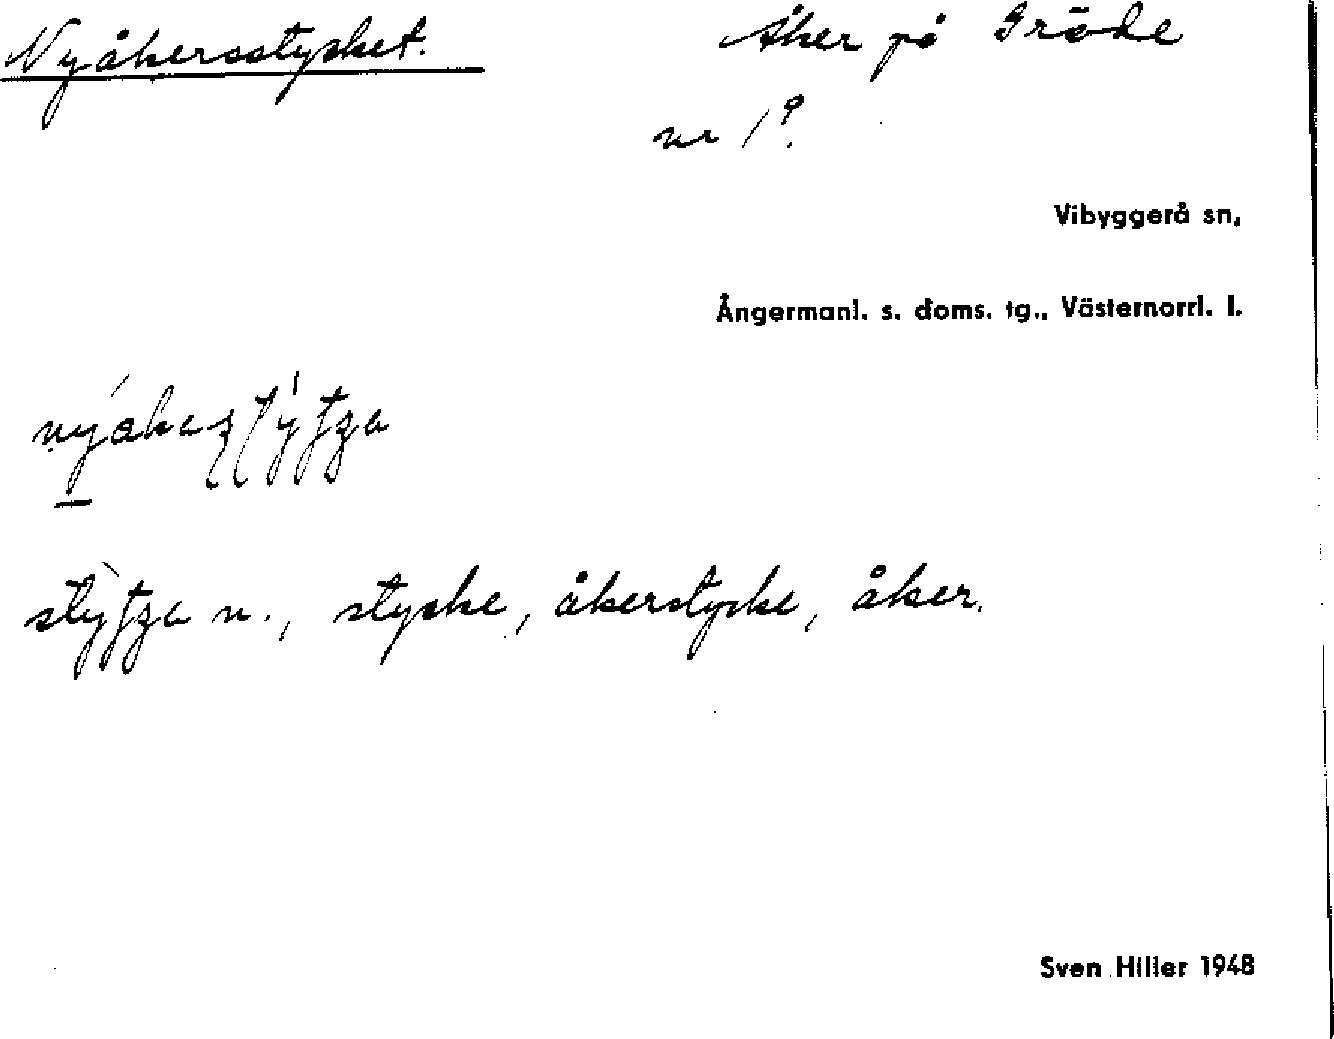 Nyåkersstycket.
Åker på Gröde
nr 1?
Vibyggerå sn,
Ångermanl. s. doms. tg., Västernorrl. l.
n., stycke, åkerstycke, åker.
Sven Hiller 1948